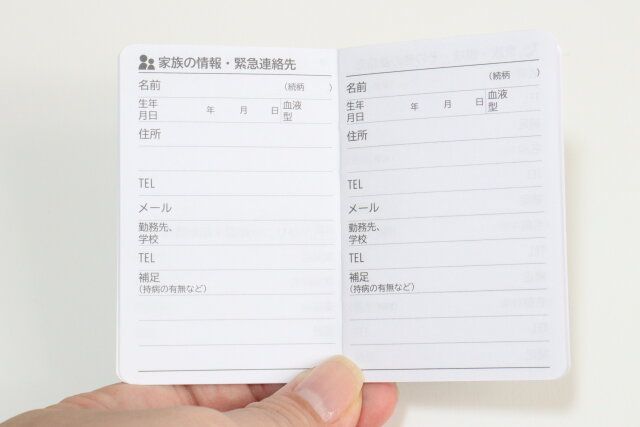 家族の情報・緊急連絡先
名前 (続柄 )
生年月日 年 月 日 血液型
住所
TEL
メール
勤務先、
学校
TEL
補足
(持病の有無など)
名前 (続柄 )
生年月日 年 月 日 血液型
住所
TEL
メール
勤務先、
学校
TEL
補足
(持病の有無など)